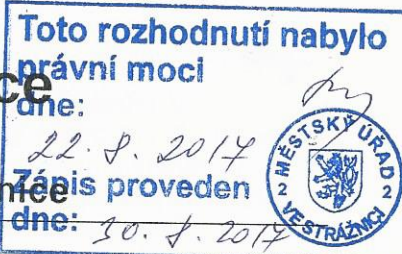 Toto rozhodnutí nabylo
právní moci
ce
dne:
22. 8. 2017
Zápis proveden
nice
dne: 30. 8. 2017
MĚSTSKÝ ÚŘAD
2 2
VE STRÁŽNICI